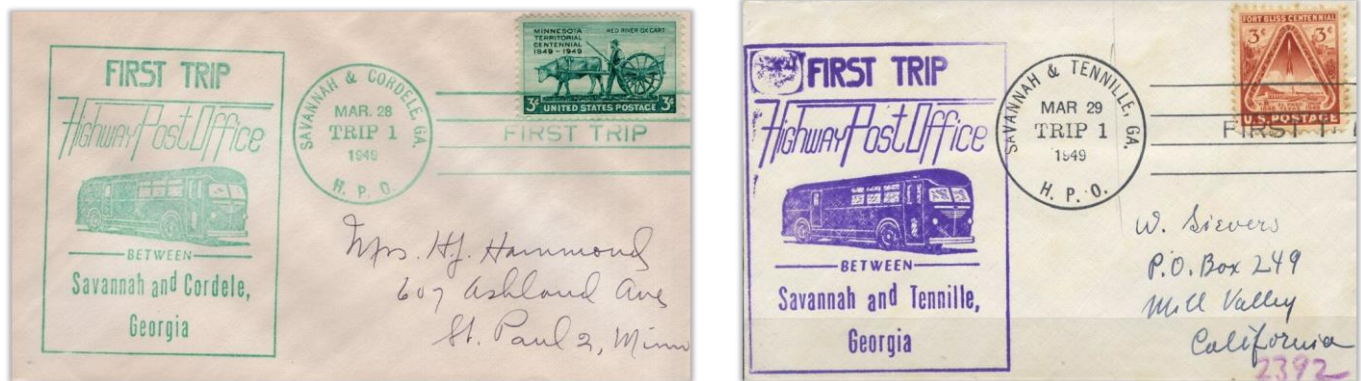 FIRST TRIP
Highway Post Office
BETWEEN
Savannah and Cordele,
Georgia
SAVANNAH & CORDELE, GA.
MAR. 28
TRIP 1
1949
H. P. O.
MINNESOTA
TERRITORIAL
CENTENNIAL
1849 - 1949
RED RIVER OX CART
3¢ UNITED STATES POSTAGE 3¢
FIRST TRIP
Mrs. H.J. Hammond
607 Ashland Ave
St. Paul 2, Minn
FIRST TRIP
Highway Post Office
BETWEEN
Savannah and Tennille,
Georgia
SAVANNAH & TENNILLE, GA.
MAR 29
TRIP 1
1949
H. P. O.
FORT BLISS CENTENNIAL
3¢ 3¢
U.S. POSTAGE
FIRST T
W. Sievers
P.O. Box 249
Mill Valley
California
2392